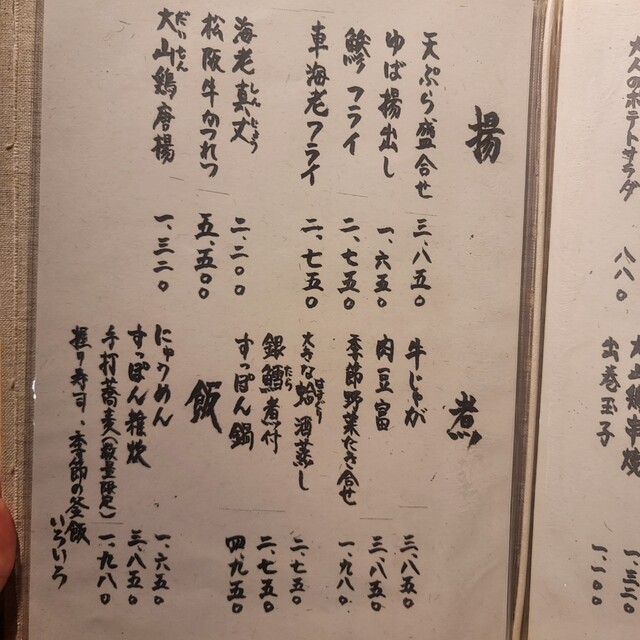 大人のポテトサラダ
八八〇
大山鶏串焼
一、三二〇
出巻玉子
一、一〇〇
揚
天ぷら盛合せ
三、八五〇
ゆば揚出し
一、六五〇
鯵フライ
二、七五〇
車海老フライ
二、七五〇
海老真丈
しんじょう
二、二〇〇
松阪牛かつれつ
五、五〇〇
大山鶏唐揚
だいせん
一、三二〇
煮
牛じゃが
三、八五〇
肉豆富
三、八五〇
季節野菜たき合せ
一、九八〇
大きな蛤酒蒸し
はまぐり
二、七五〇
銀鱈煮付
たら
二、七五〇
すっぽん鍋
四、九五〇
飯
にゅうめん
一、六五〇
すっぽん雑炊
三、八五〇
手打蕎麦(数量限定)
一、九八〇
握り寿司、季節の釜飯
いろいろ